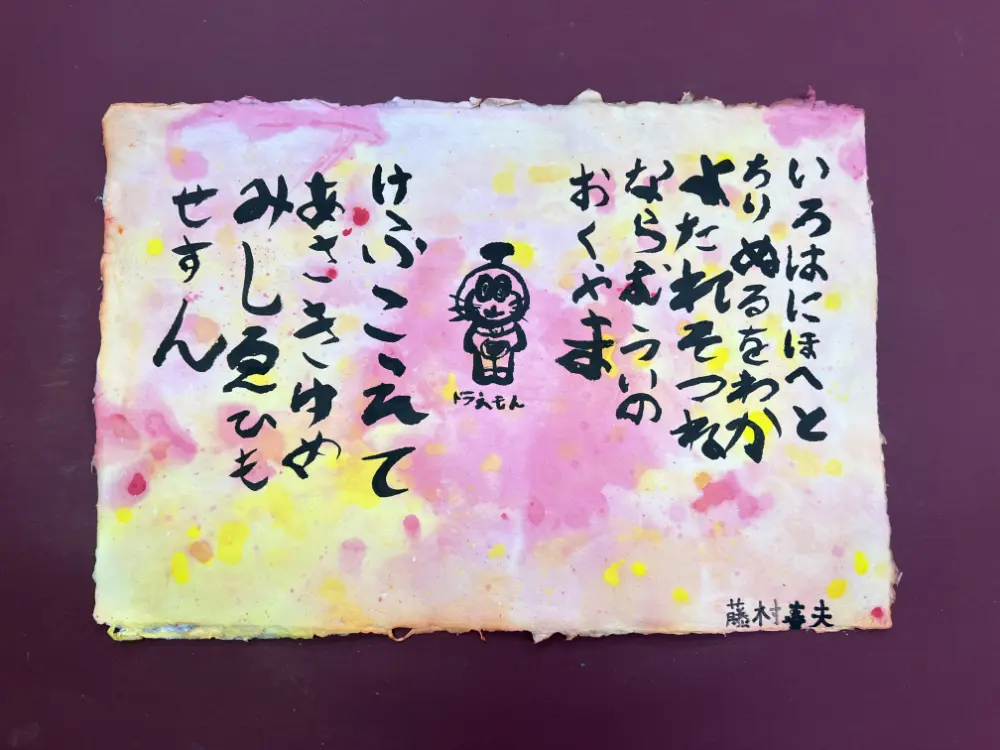 いろはにほへと
ちりぬるをわか
よたれそつね
ならむういの
おくやま
けふこえて
あさきゆめ
みしゑひも
せすん
ドラえもん
藤村春夫